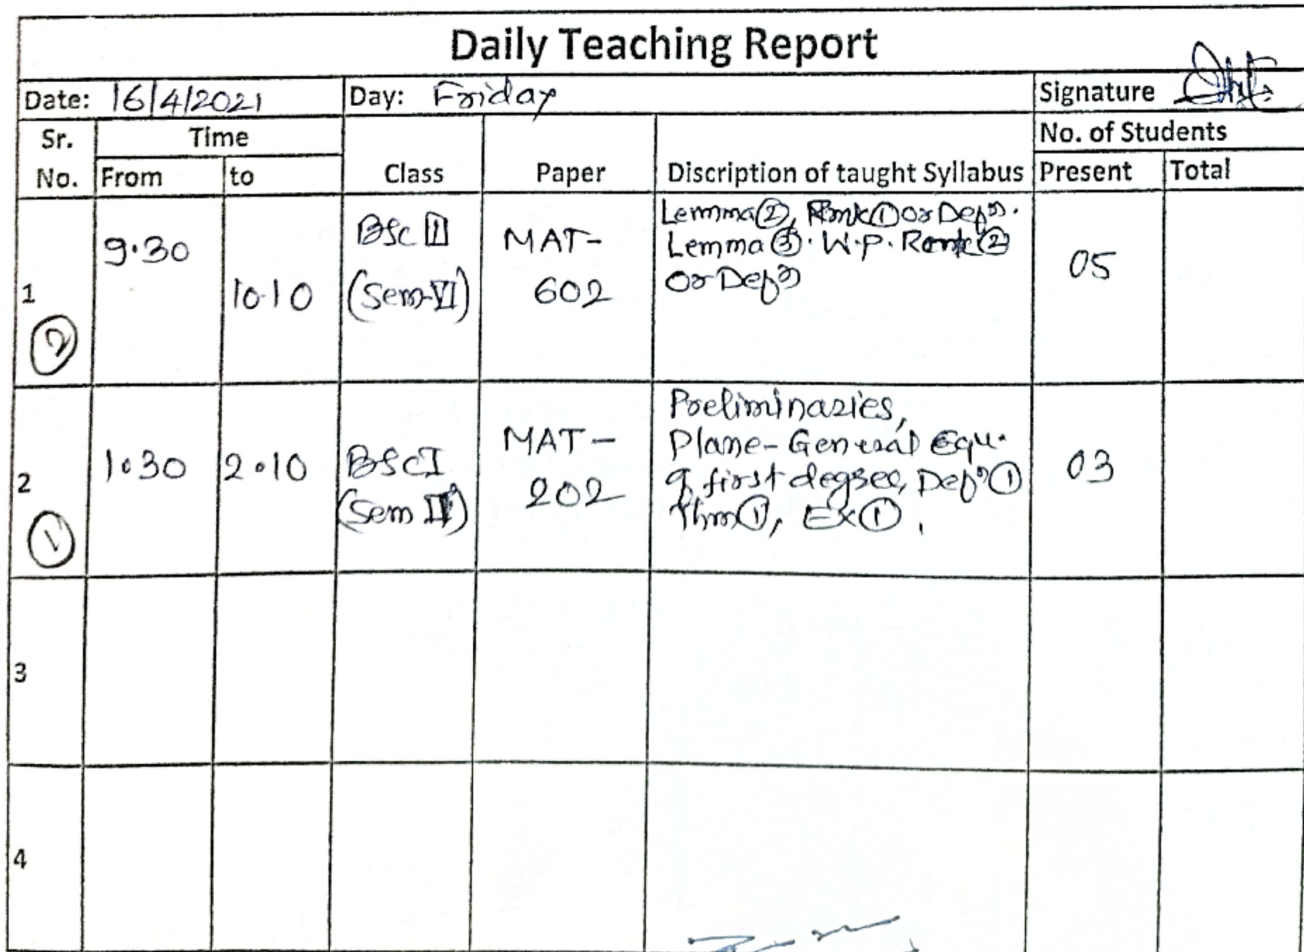 Daily Teaching Report
Date: 16/4/2021 Day: Friday Signature
Sr. No. Time From to Class Paper Discription of taught Syllabus No. of Students Present Total
1 ② 9.30 10.10 BSc III (Sem-VI) MAT-602 05
Lemma ②, Rmk ① Or Defn.
Lemma ③. W.P. Rmk ②
Or Defn
2 ① 1.30 2.10 BSc I (Sem II) MAT-202 03
Preliminaries,
Plane- General Equ.
of first degree, Defn ①
Thm ①, Ex ①.
3
4